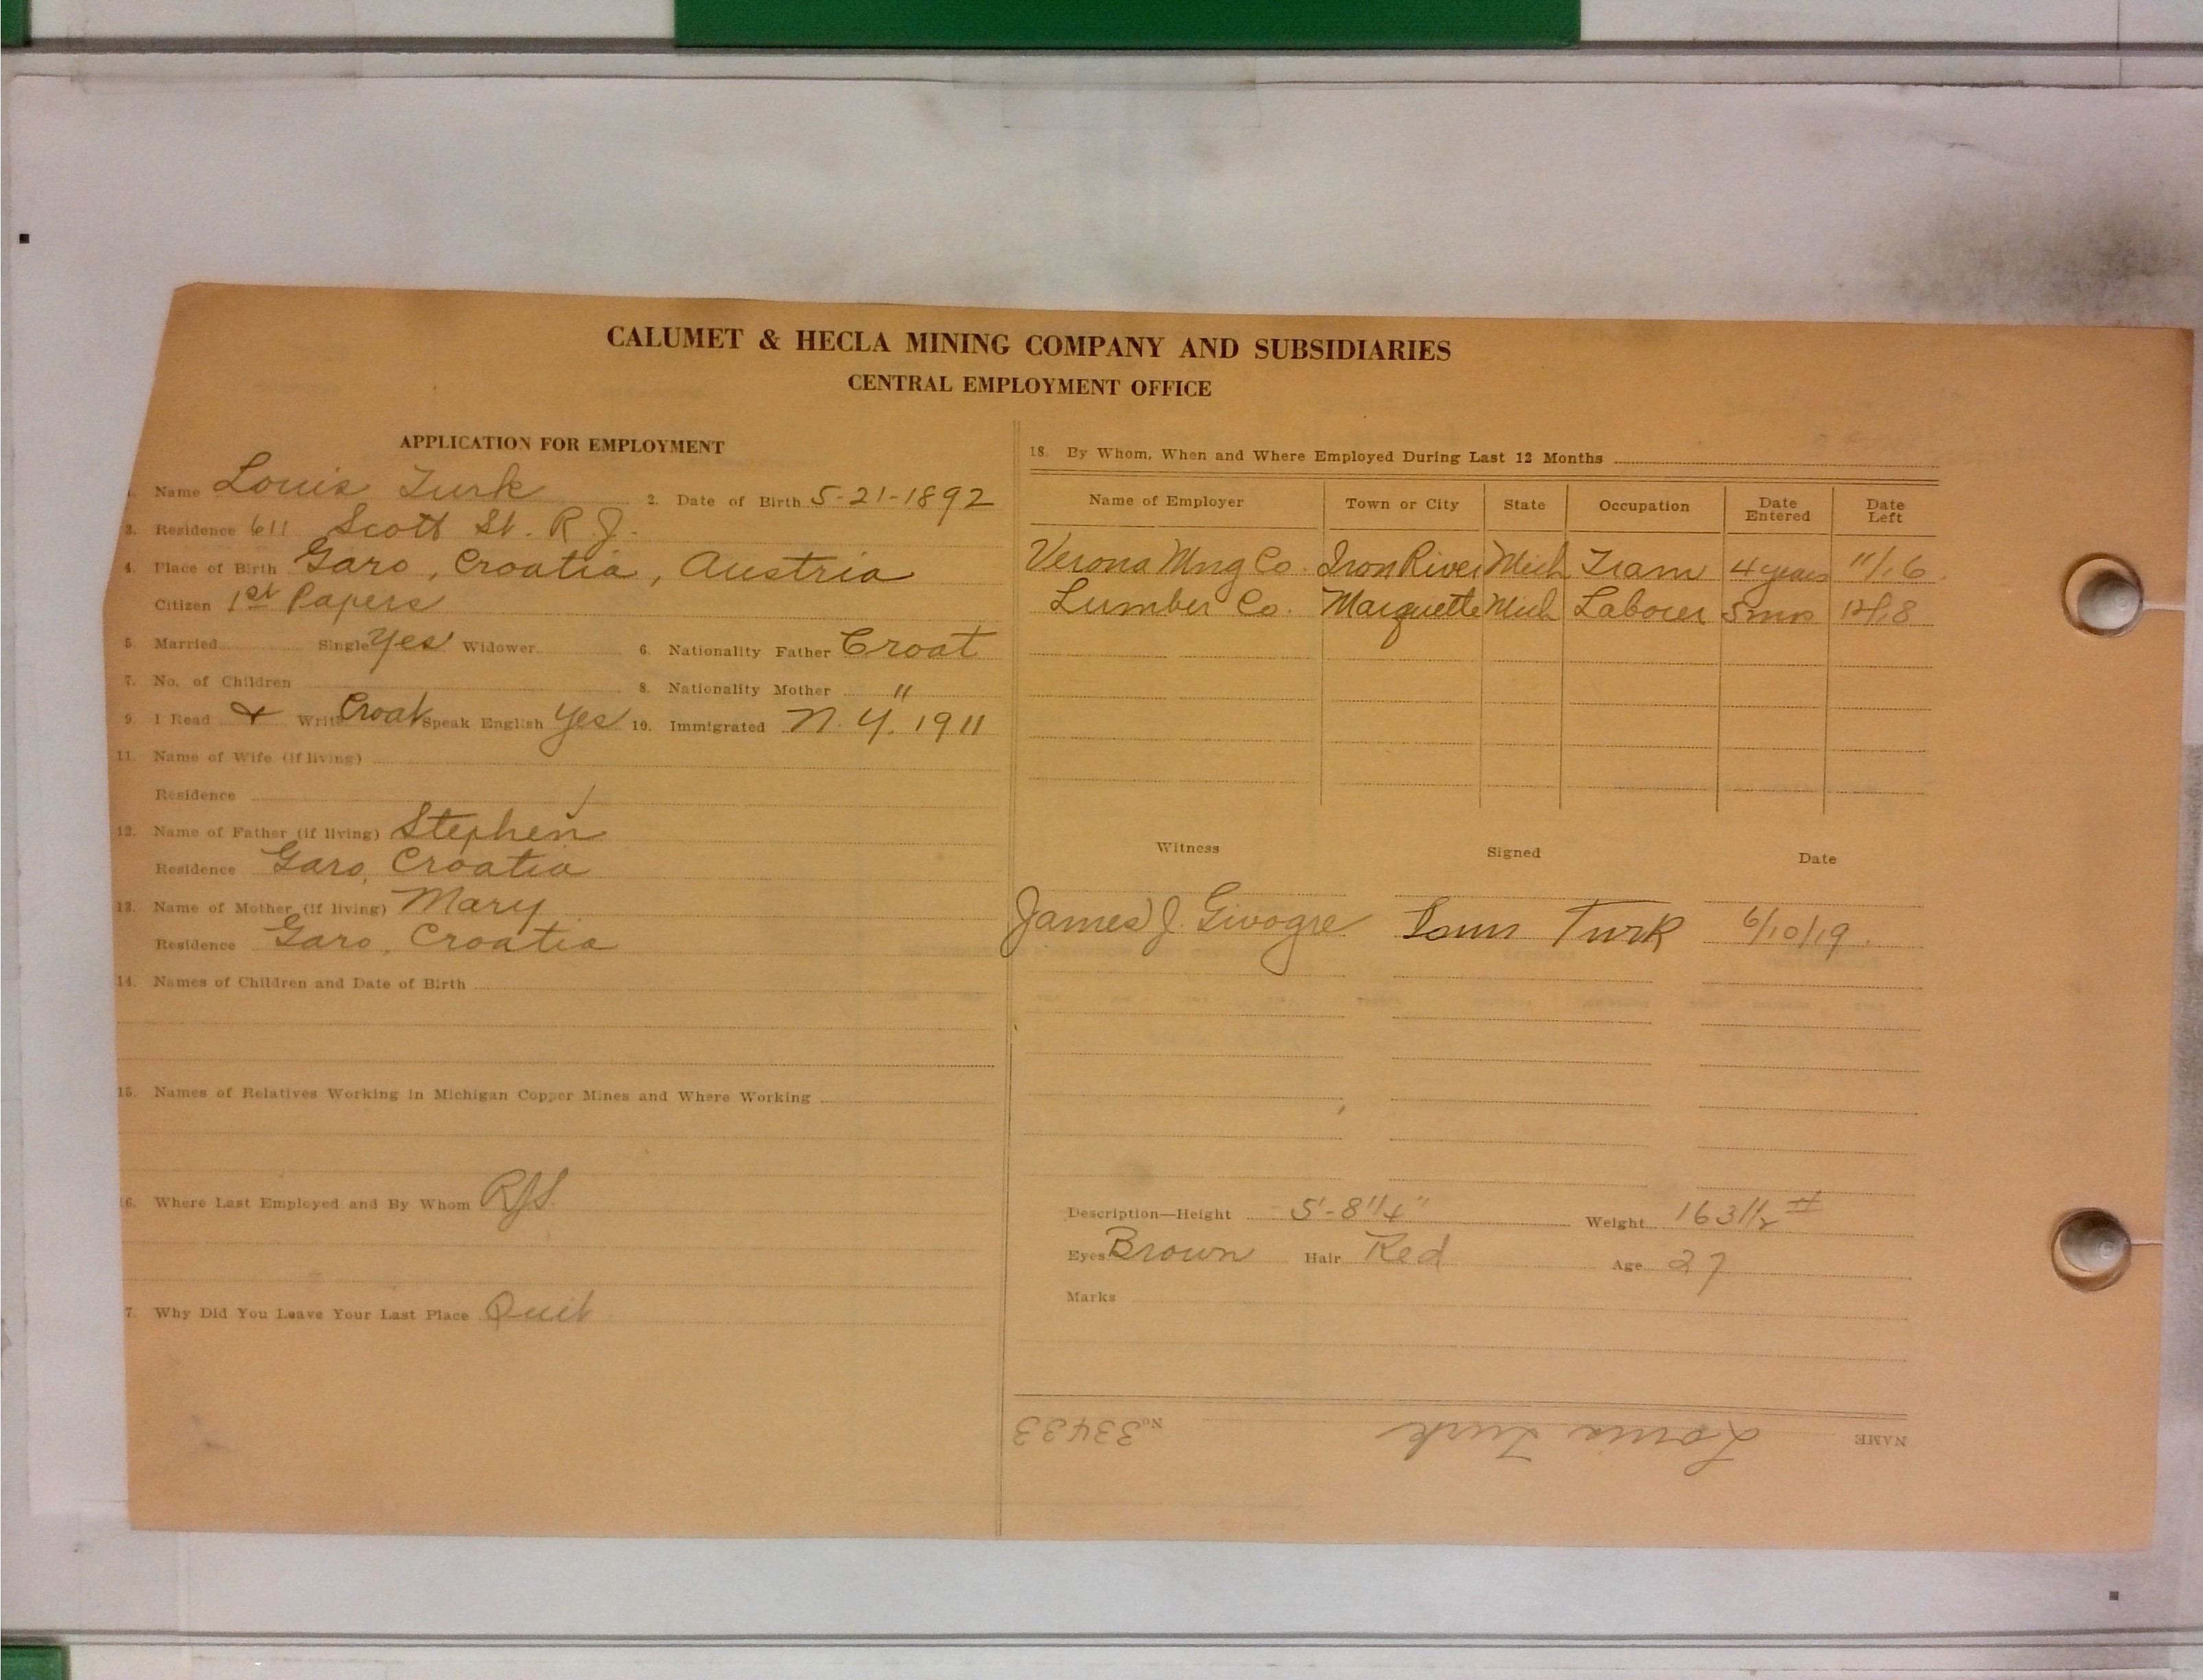 CALUMET & HECLA MINING COMPANY AND SUBSIDIARIES
CENTRAL EMPLOYMENT OFFICE
APPLICATION FOR EMPLOYMENT
1. Name Louis Turk 2. Date of Birth 5-21-1892
3. Residence 611 Scott St. R.J.
4. Place of Birth Garo, Croatia, Austria
Citizen 1st Papers
5. Married Single Yes Widower 6. Nationality Father Croat
7. No. of Children 8. Nationality Mother "
9. I Read & Write Croat Speak English Yes 10. Immigrated N.Y. 1911
11. Name of Wife (if living)
Residence
12. Name of Father (if living) Stephen
Residence Garo, Croatia
13. Name of Mother (if living) Mary
Residence Garo, Croatia
14. Names of Children and Date of Birth
15. Names of Relatives Working in Michigan Copper Mines and Where Working
16. Where Last Employed and By Whom
7. Why Did You Leave Your Last Place Quit
18. By Whom, When and Where Employed During Last 12 Months
Name of Employer Town or City State Occupation Date Entered Date Left
Verona Mng Co. Iron River Mich Tram 4 years 11/16
Lumber Co. Marquette Mich Laborer 5 mos 12/18
Witness Signed Date
James J. Givogre Louis Turk 6/10/19.
Description—Height 5'-8 1/4" Weight 163 1/2 #
Eyes Brown Hair Red Age 27
Marks
NAME Louis Turk No. 33433